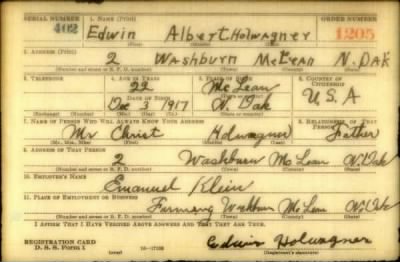 SERIAL NUMBER 1. NAME (Print) ORDER NUMBER
402 Edwin Albert Holwagner 1205
(First) (Middle) (Last)
2. ADDRESS (Print)
2 Washburn McLean N. Dak
(Number and street or R. F. D. number) (Town) (County) (State)
3. TELEPHONE 4. AGE IN YEARS 5. PLACE OF BIRTH 6. COUNTRY OF CITIZENSHIP
22 McLean
DATE OF BIRTH U.S.A
Dec 3 1917 N. Dak
7. NAME OF PERSON WHO WILL ALWAYS KNOW YOUR ADDRESS 8. RELATIONSHIP OF THAT PERSON
Mr Christ Holwagner Father
(Mr., Mrs., Miss) (First) (Middle) (Last)
9. ADDRESS OF THAT PERSON
2 Washburn McLean N. Dak
(Number and street or R. F. D. number) (Town) (County) (State)
10. EMPLOYER'S NAME
Emanuel Klein
11. PLACE OF EMPLOYMENT OR BUSINESS
Farming Washburn McLean N. Dak
(Number and street or R. F. D. number) (Town) (County) (State)
I AFFIRM THAT I HAVE VERIFIED ABOVE ANSWERS AND THAT THEY ARE TRUE.
REGISTRATION CARD
D. S. S. Form 1 Edwin Holwagner
(Registrant's signature)